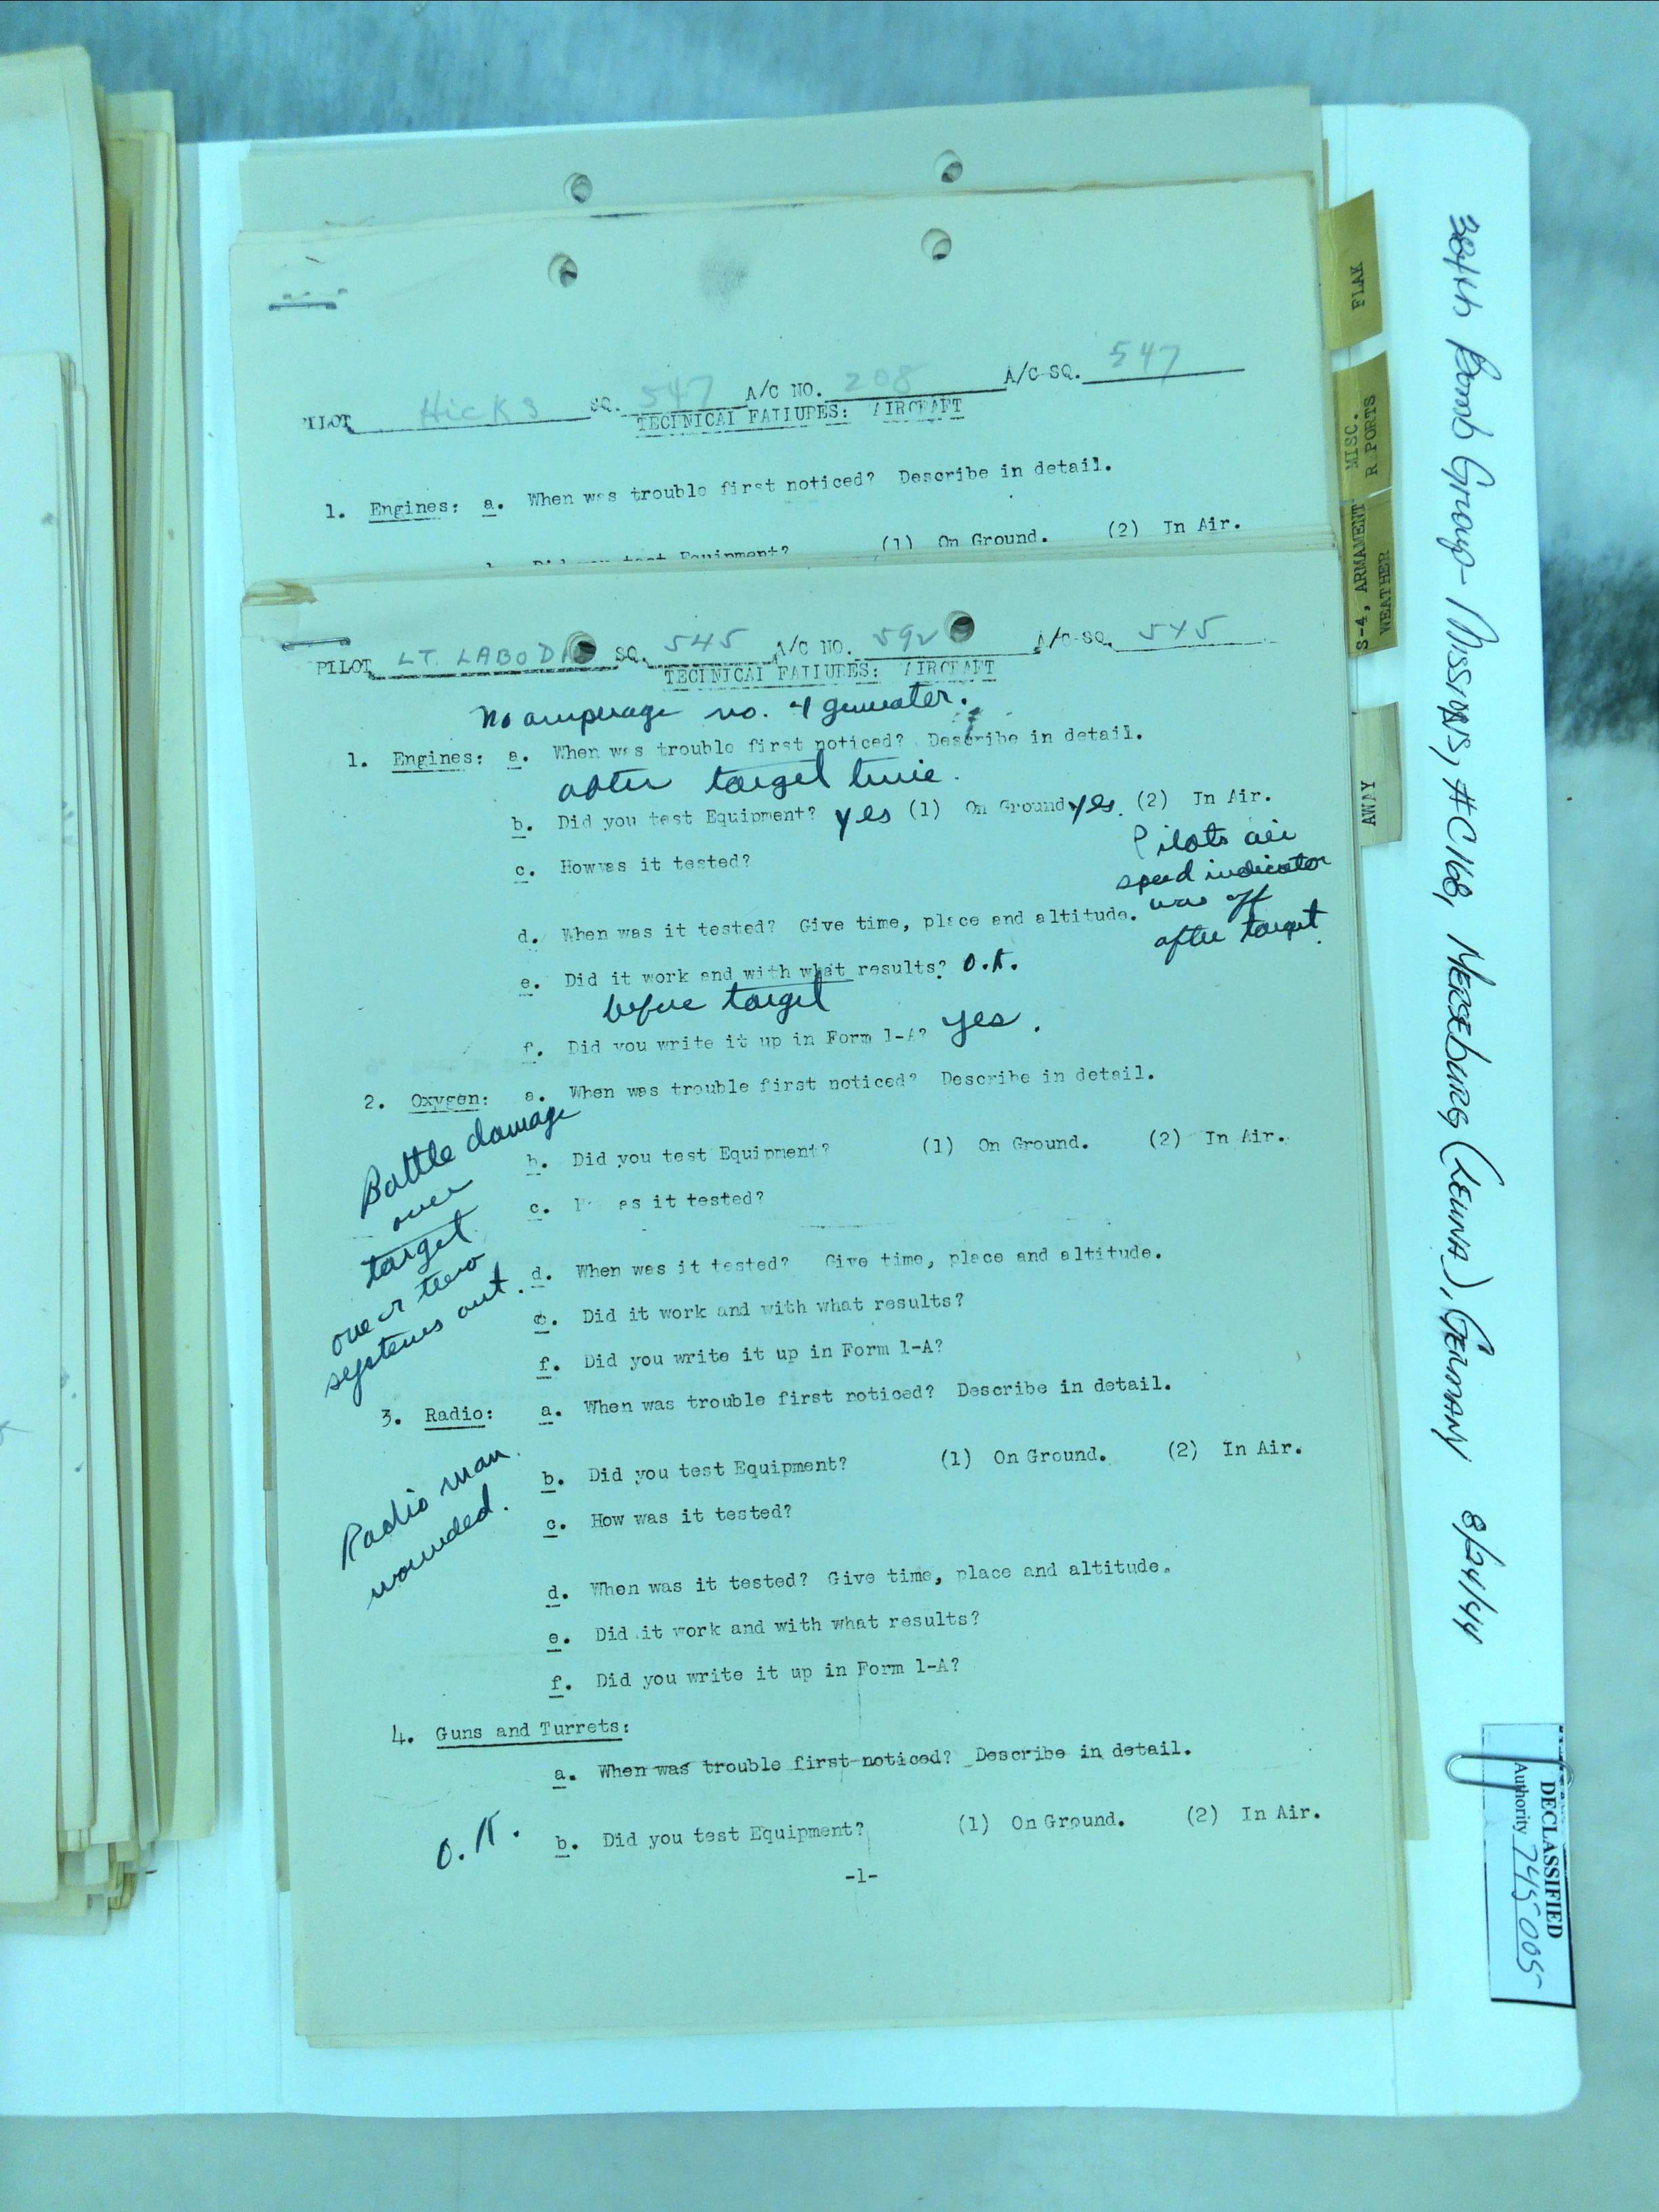 PILOT Hicks SQ. 547 A/C NO. 208 A/C SQ. 547
TECHNICAL FAILURES: AIRCRAFT
1. Engines: a. When was trouble first noticed? Describe in detail.
b. Did you test Equipment? (1) On Ground. (2) In Air.
PILOT LT. LABODA SQ. 545 A/C NO. 592 A/C SQ. 545
TECHNICAL FAILURES: AIRCRAFT
No amperage no. 4 generator.
1. Engines: a. When was trouble first noticed? Describe in detail.
after target time.
b. Did you test Equipment? yes (1) On Ground yes. (2) In Air.
Pilots air
speed indicator
was off
after target.
c. How was it tested?
d. When was it tested? Give time, place and altitude.
e. Did it work and with what results? O.K.
before target
f. Did you write it up in Form 1-A? yes.
2. Oxygen: a. When was trouble first noticed? Describe in detail.
Battle damage
over
target
systems out.
b. Did you test Equipment? (1) On Ground. (2) In Air.
c. as it tested?
d. When was it tested? Give time, place and altitude.
e. Did it work and with what results?
f. Did you write it up in Form 1-A?
3. Radio: a. When was trouble first noticed? Describe in detail.
Radio man
wounded.
b. Did you test Equipment? (1) On Ground. (2) In Air.
c. How was it tested?
d. When was it tested? Give time, place and altitude.
e. Did it work and with what results?
f. Did you write it up in Form 1-A?
4. Guns and Turrets:
a. When was trouble first noticed? Describe in detail.
O.K.
b. Did you test Equipment? (1) On Ground. (2) In Air.
-1-
FLAK
MISC.
R PORTS
S-4, ARMAMENT
WEATHER
AWAY
384th Bomb Group - Missions, #C168, Merseburg (Leuna), Germany 8/24/44
DECLASSIFIED
Authority 745005